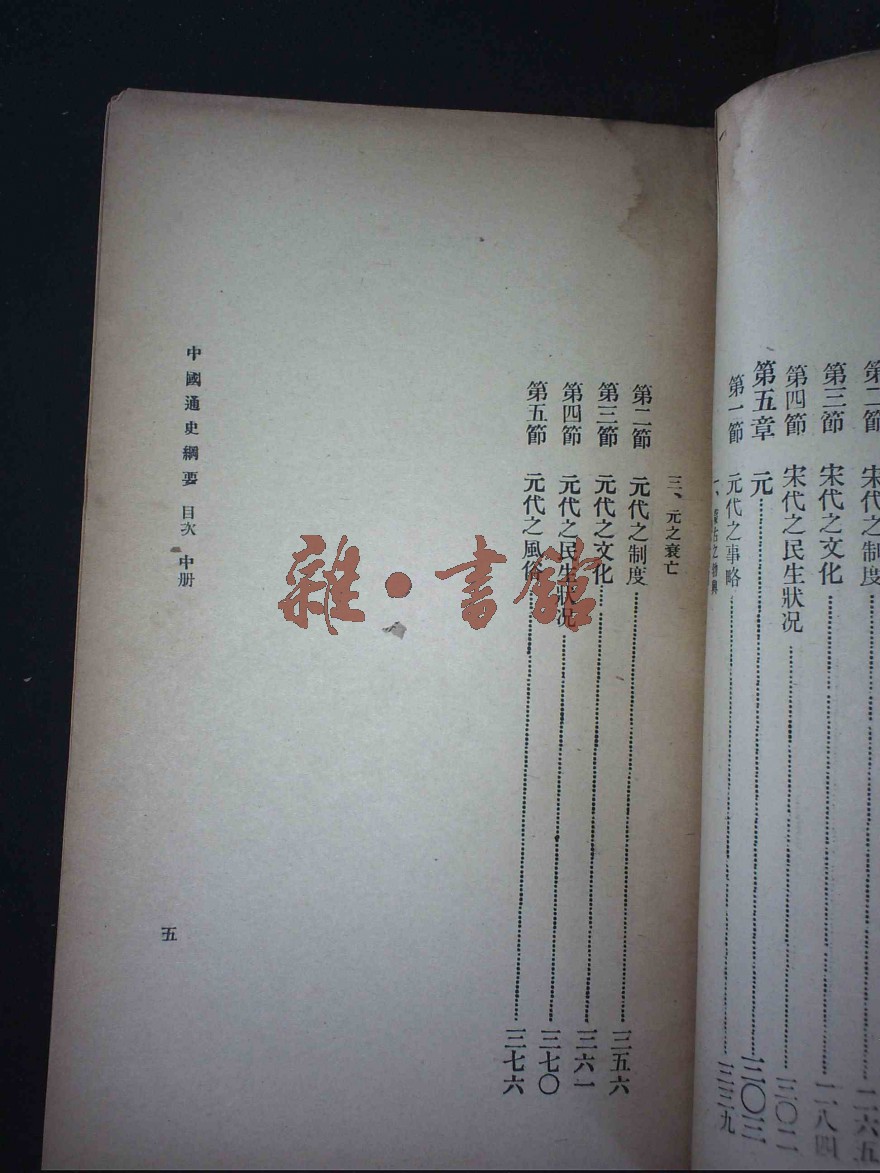 第二節 宋代之制度……二六五
第三節 宋代之文化……二八四
第四節 宋代之民生狀况……三〇二
第五章 元……三〇三
第一節 元代之事略……三三九
一、蒙古之勃興
三、元之衰亡
第二節 元代之制度……三五六
第三節 元代之文化……三六一
第四節 元代之民生狀况……三七〇
第五節 元代之風俗……三七六
中國通史綱要 目次 中册
五
雜·書館